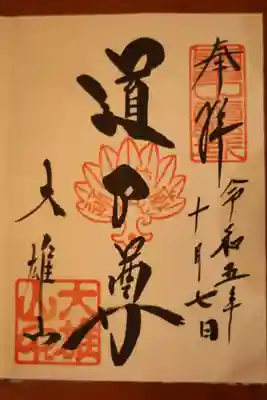 奉拝
令和五年
十月七日
道了尊
大雄山